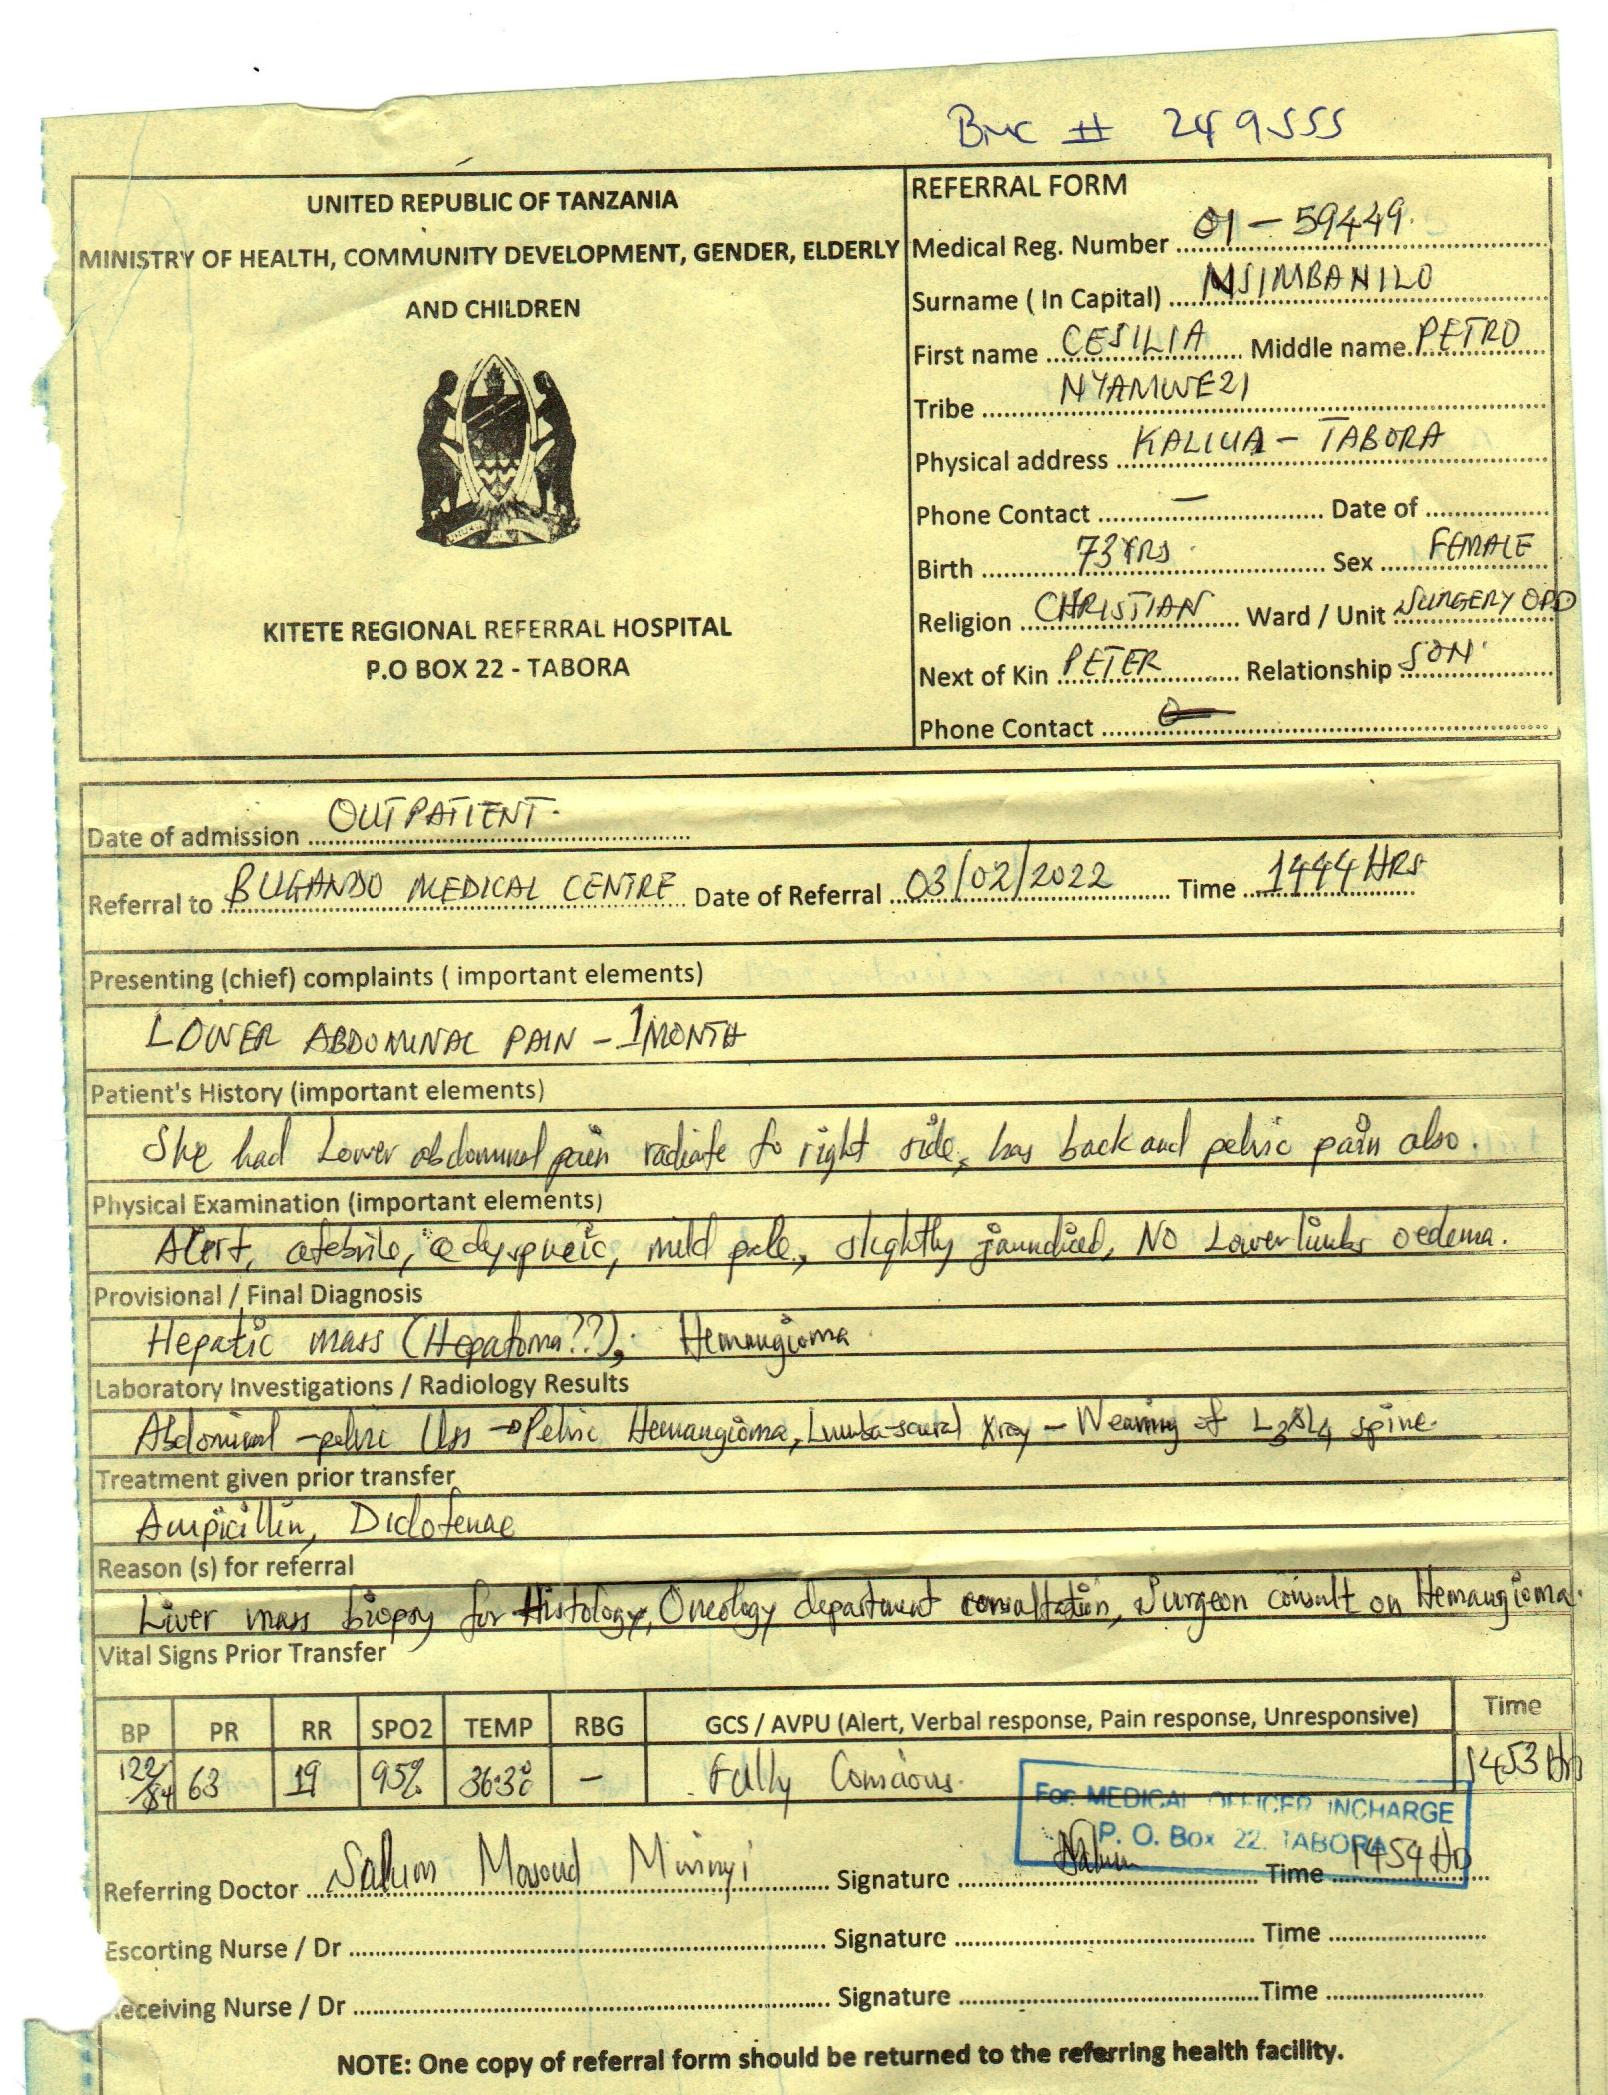 BMC # 249555
UNITED REPUBLIC OF TANZANIA
MINISTRY OF HEALTH, COMMUNITY DEVELOPMENT, GENDER, ELDERLY
AND CHILDREN
KITETE REGIONAL REFERRAL HOSPITAL
P.O BOX 22 - TABORA
REFERRAL FORM
Medical Reg. Number 01-59449.
Surname ( In Capital) MSIMBANILO
First name CESILIA Middle name PETRO
Tribe NYAMWEZI
Physical address KALIUA - TABORA
Phone Contact — Date of
Birth 73 YRS Sex FEMALE
Religion CHRISTIAN Ward / Unit SURGERY OPD
Next of Kin PETER Relationship SON
Phone Contact
Date of admission OUTPATIENT.
Referral to BUGANDO MEDICAL CENTRE Date of Referral 03/02/2022 Time 1444 HRS
Presenting (chief) complaints ( important elements)
LOWER ABDOMINAL PAIN - 1 MONTH
Patient's History (important elements)
She had Lower abdominal pain radiate to right side, has back and pelvic pain also.
Physical Examination (important elements)
Alert, afebrile, adyspneic, mild pale, slightly jaundiced, NO Lower limbs oedema.
Provisional / Final Diagnosis
Hepatic mass (Hepatoma??), Hemangioma
Laboratory Investigations / Radiology Results
Abdominal - pelvic Uss → Pelvic Hemangioma, Lumba-scural Xray - Wearing of L3&L4 spine.
Treatment given prior transfer
Ampicillin, Diclofenac
Reason (s) for referral
Liver mass biopsy for Histology, Oncology department consultation, Surgeon consult on Hemangioma.
Vital Signs Prior Transfer
BP PR RR SPO2 TEMP RBG GCS / AVPU (Alert, Verbal response, Pain response, Unresponsive) Time
122/84 63 19 95% 36.3°C — Fully Conscious. 1453 Hrs
For: MEDICAL OFFICER INCHARGE
P. O. Box 22. TABORA
Referring Doctor Salum Masoud Signature Salum Time 1454 Hrs
Escorting Nurse / Dr Signature Time
Receiving Nurse / Dr Signature Time
NOTE: One copy of referral form should be returned to the referring health facility.